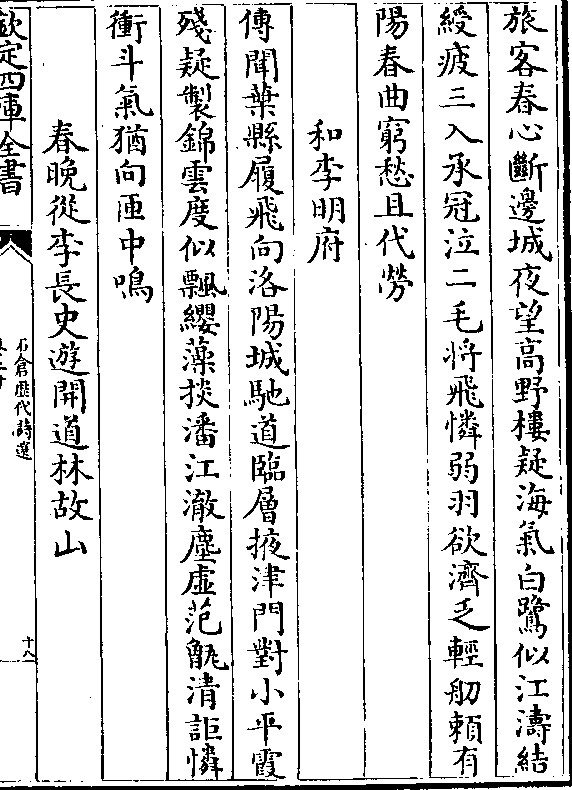 旅客春心斷邊城夜望高野樓疑海氣白鷺似江濤結
綬疲三入承冠泣二毛將飛憐弱羽欲濟乏輕舠頼有
陽春曲窮愁且代勞
和李明府
傳聞葉縣履飛向洛陽城馳道臨層掖津門對小平霞
殘疑製錦雲度似飄纓藻掞潘江澈塵虛范甑清詎憐
衝斗氣猶向匣中鳴
春晚從李長史遊開道林故山
欽定四庫全書
石倉歴代詩選
十八